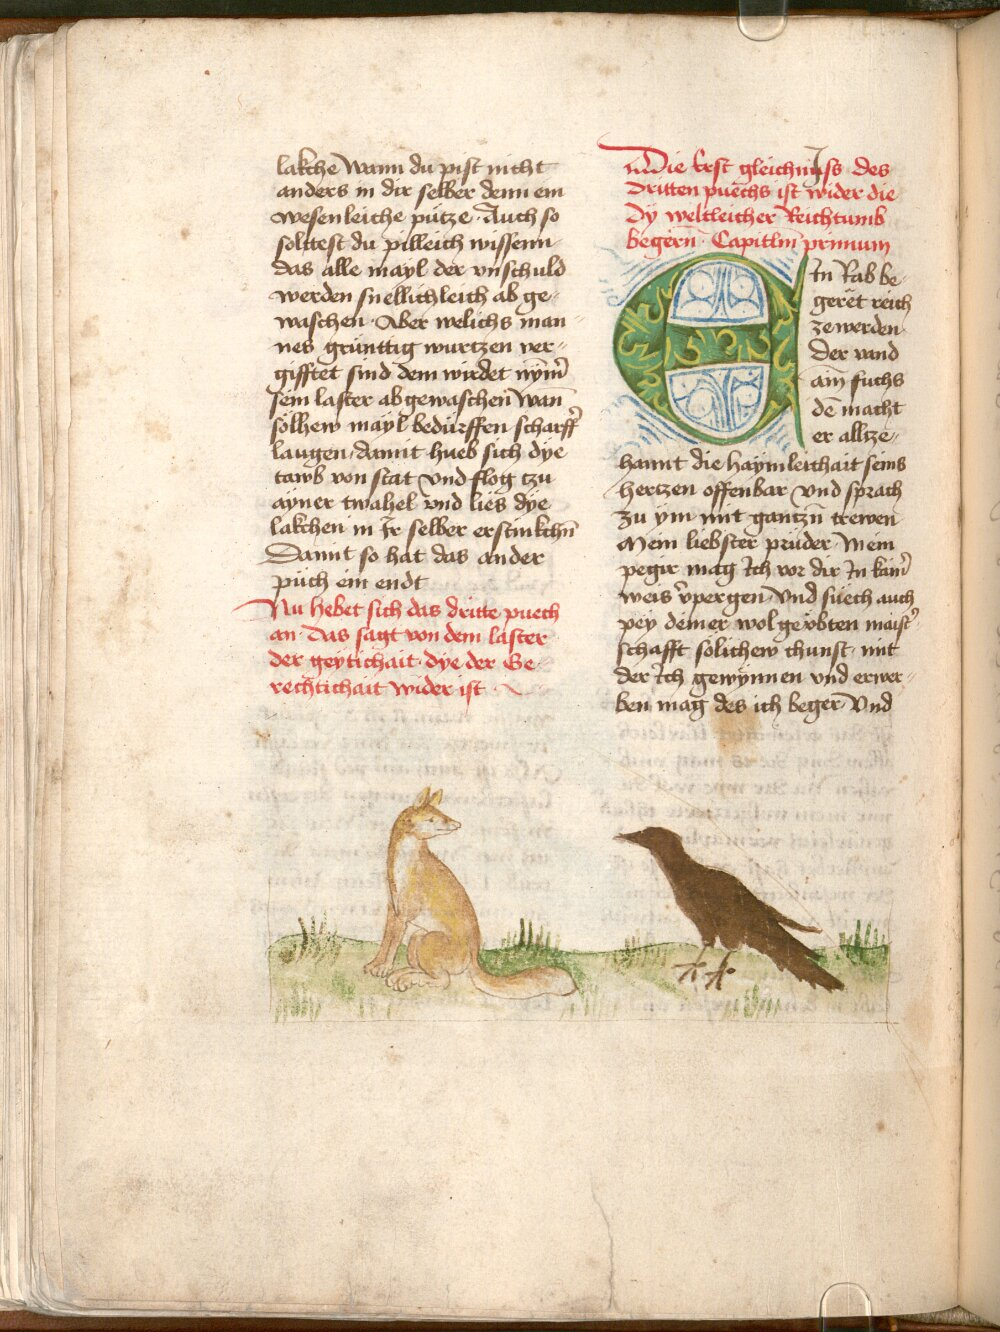 lakche Wann du pist nicht
anders in dir selber denn ein
wesenleiche pütze · Auch so
solttest du pilleich wissenn
das alle mayl der vnschuld
werden snellichleich ab ge-
waschen · Aber welichs man-
nes grünttig wurtzen ver-
gifftet sind dem wirdet nÿm̄
sein laster abgewaschen Wan̄
sölhew mayl bedürffen scharff
laugen · damit hueb sich dye
tawb von stat vnd flog tzu
ayner twahel vnd lies dye
lakchen in Ir selber erstinkchn̄
Damit so hat das ander
püch ein endt
Nu hebet sich das dritte puech
an · Das sagt von dem laster
der geytichait · dye der Ge-
rechtichait wider ist
Die Erst gleichnüss des
Dritten puechs ist wider die
Dy weltleicher Reichtumb
begern̄ · Capitlm̄ primum
EIn Rab be-
geret reich
ze werden
Der vand
ain fuchs
dē macht
er allze-
hannt die haymleichait seins
hertzen offenbar vnd sprach
zu ym mit gantzn̄ trewen
Mein liebster prüder Mein
pegir mag Ich vor dir In kain̄
weis v̄pergen · Vnd suech auch
pey deiner wol geübten maist̄
schafft solichew chunst · mit
der Ich gewÿnnen vnd erwer-
ben mag des ich beger Vnd